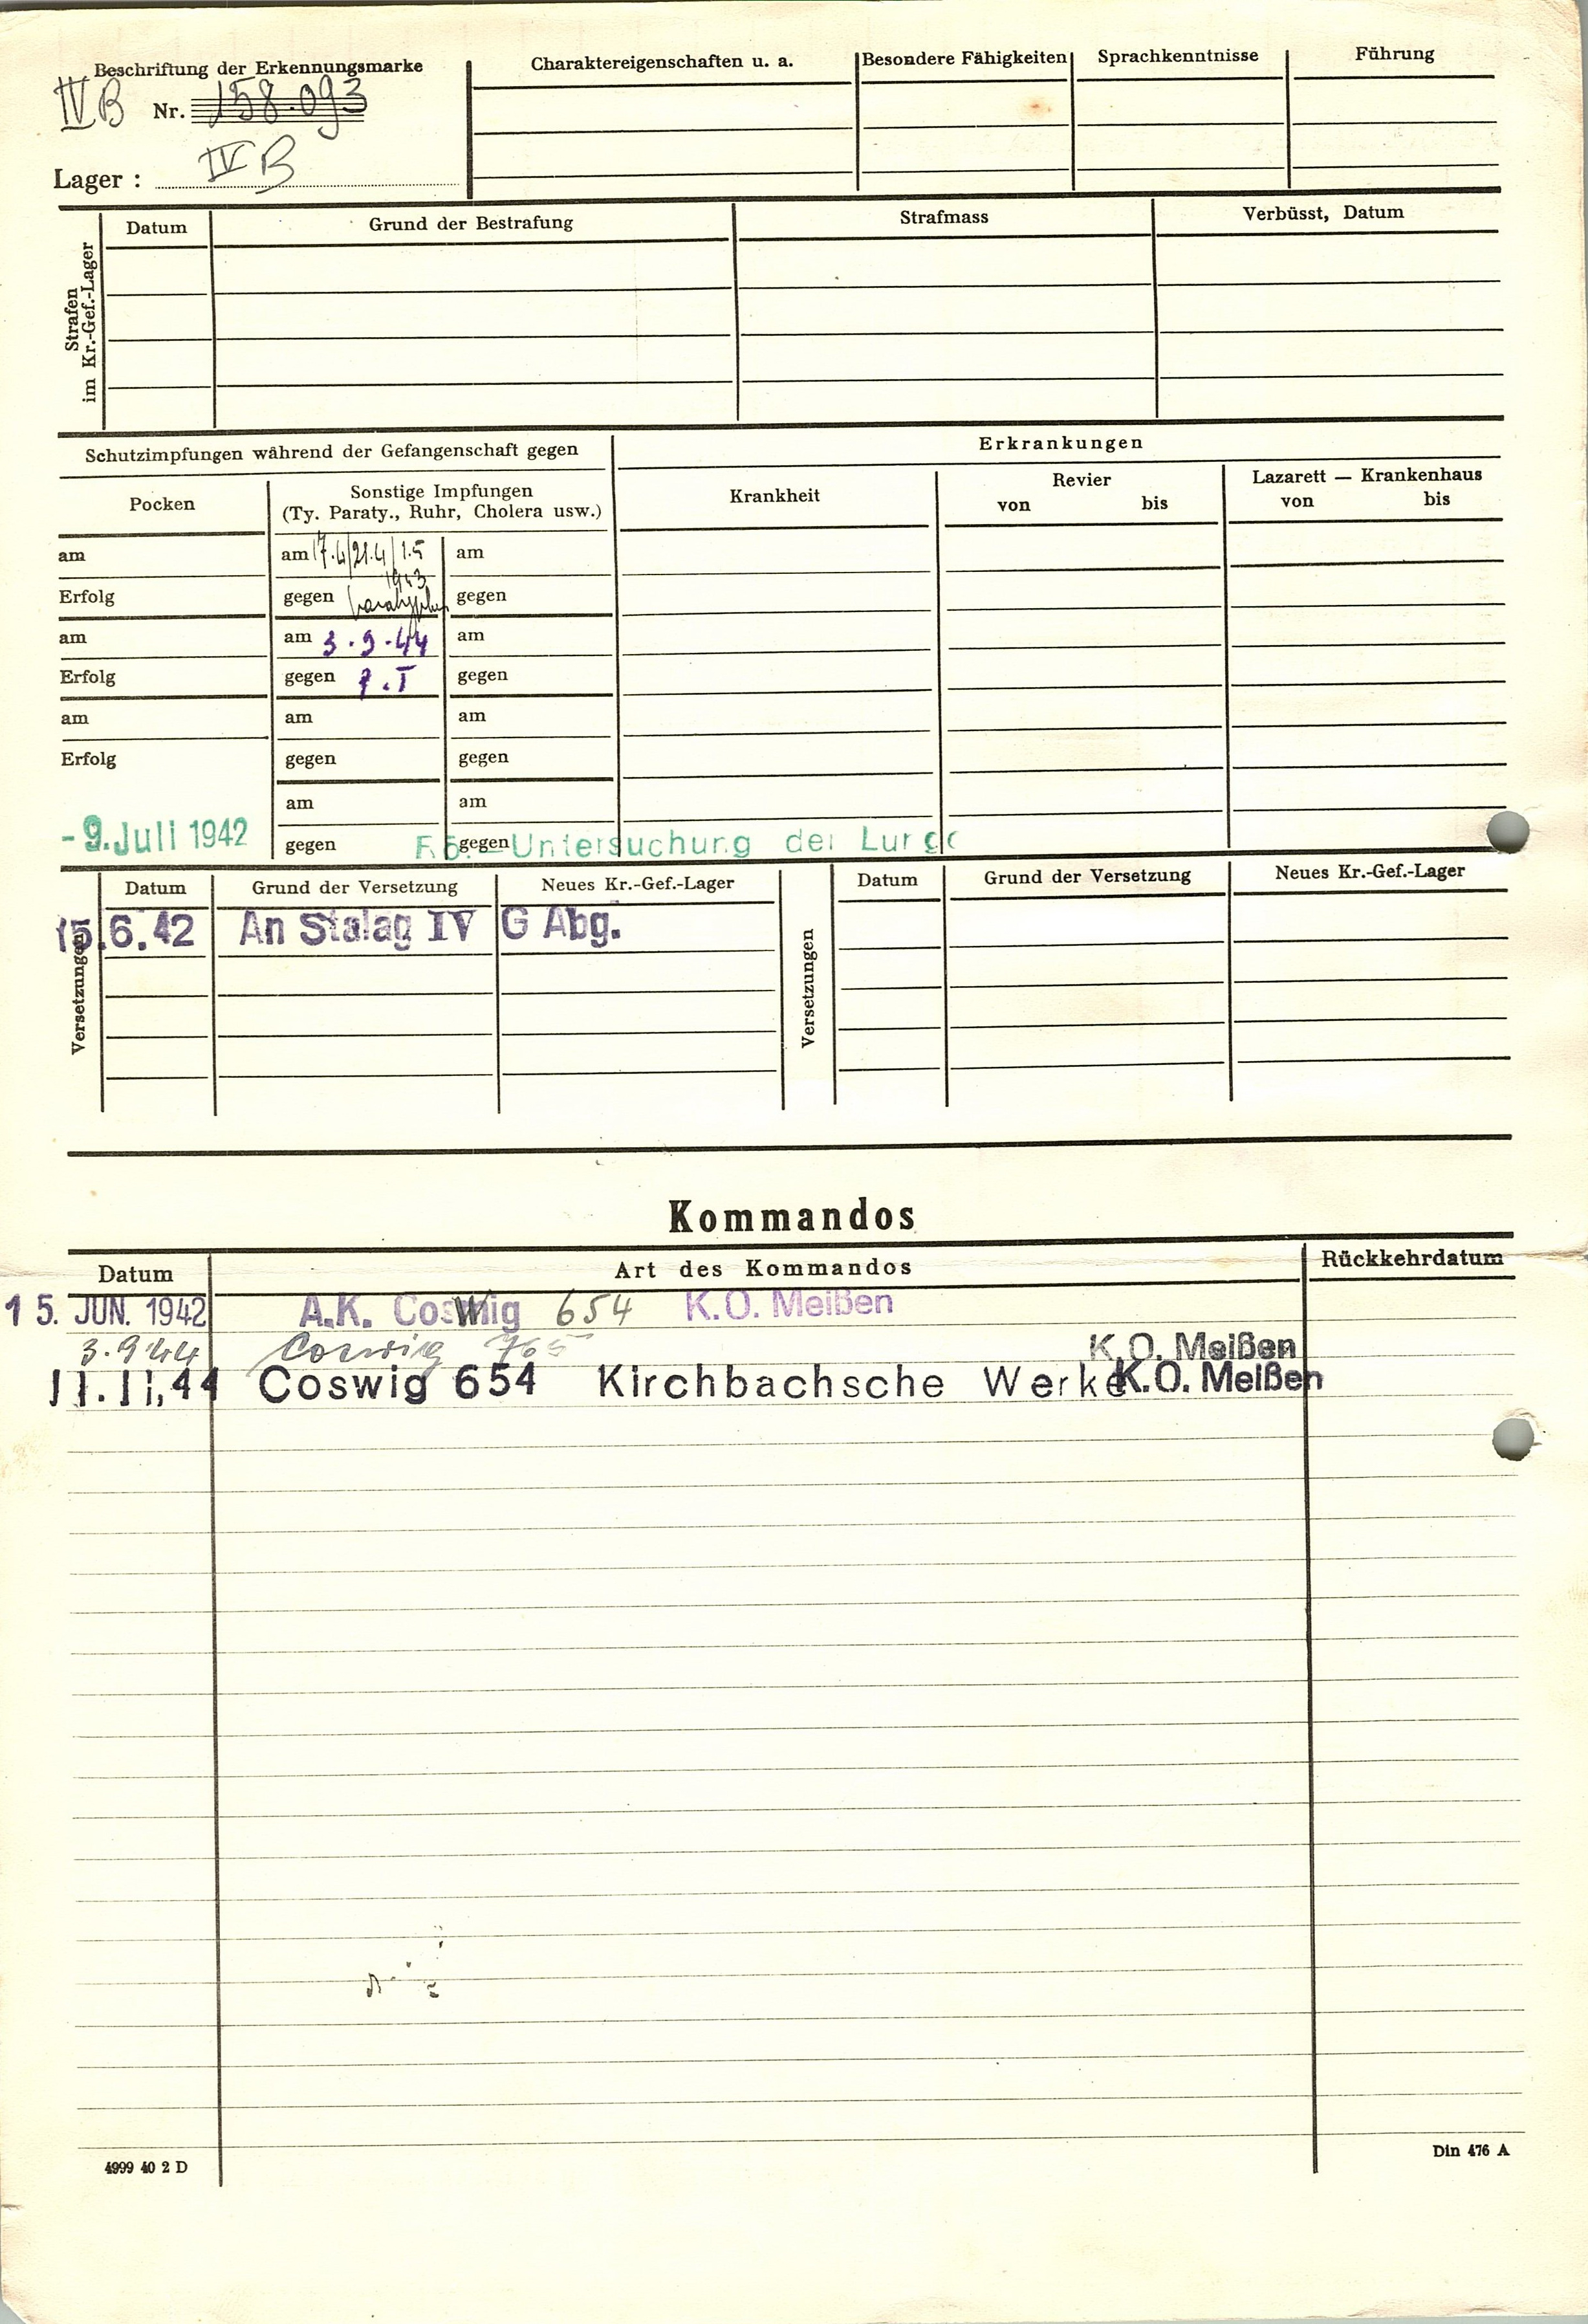 Beschriftung der Erkennungsmarke
IV B Nr. 158.093
Lager : IV B
Charaktereigenschaften u. a.
Besondere Fähigkeiten
Sprachkenntnisse
Führung
Strafen
im Kr.-Gef.-Lager
Datum
Grund der Bestrafung
Strafmass
Verbüsst, Datum
Schutzimpfungen während der Gefangenschaft gegen
Erkrankungen
Pocken
Sonstige Impfungen
(Ty. Paraty., Ruhr, Cholera usw.)
Krankheit
Revier
von bis
Lazarett — Krankenhaus
von bis
am am 17.4/21.4/1.5 am
1943
Erfolg gegen gegen
am am 3.9.44 am
Erfolg gegen P.T gegen
am am am
Erfolg gegen gegen
am am
- 9. Juli 1942 gegen gegen
Untersuchung der Lunge
Versetzungen
Datum Grund der Versetzung Neues Kr.-Gef.-Lager
15.6.42 An Stalag IV G Abg.
Versetzungen
Datum Grund der Versetzung Neues Kr.-Gef.-Lager
Kommandos
Datum Art des Kommandos Rückkehrdatum
15. JUN. 1942 A.K. Coswig 654 K.O. Meißen
3.9.44 Coswig 765 K.O. Meißen
11.11.44 Coswig 654 Kirchbachsche Werke K.O. Meißen
4999 40 2 D
Din 476 A